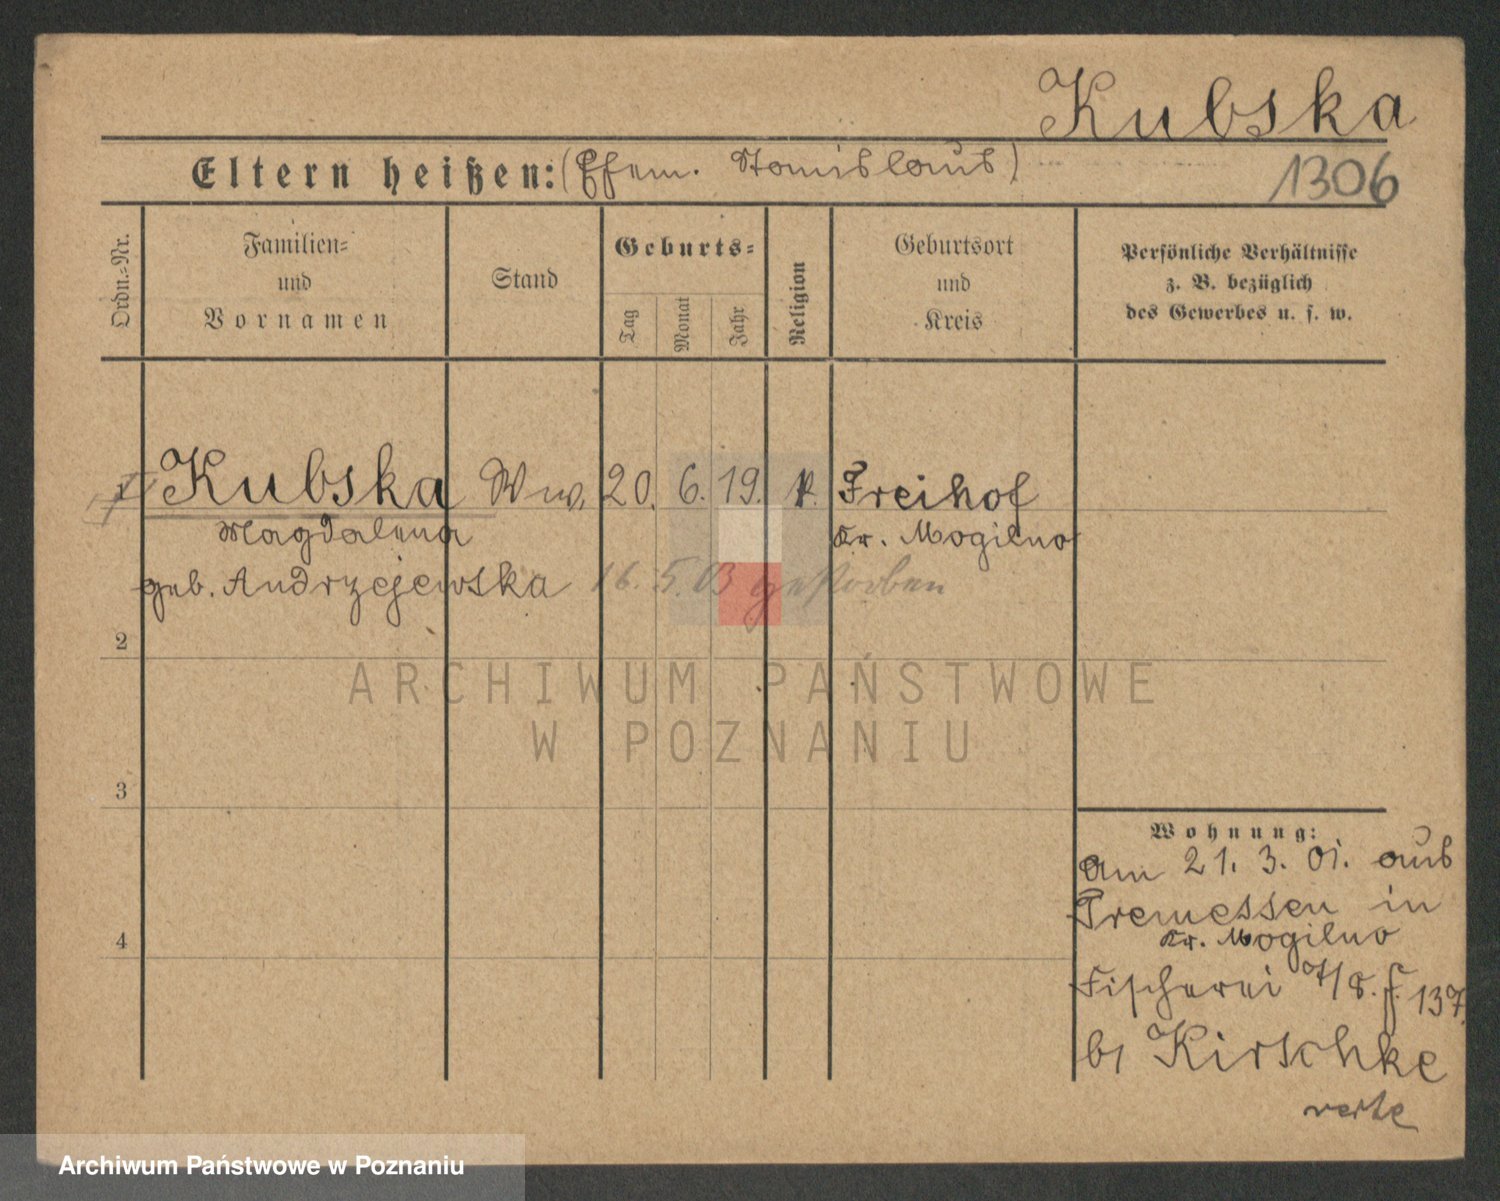 Kubska
Eltern heißen: (Ehem. Stanislaus)
1306
Ordn.-Nr.
Familien-
und
Vornamen
Stand
Geburts-
Tag
Monat
Jahr
Religion
Geburtsort
und
Kreis
Persönliche Verhältnisse
z. B. bezüglich
des Gewerbes u. s. w.
Kubska Ww. 20. 6. 19. k. Freihof
Magdalena Kr. Mogilno
geb. Andrzejewska 16. 5. 03 gestorben
2
3
4
ARCHIWUM PAŃSTWOWE
W POZNANIU
Wohnung:
Am 21. 3. 01. aus
Tremessen in
Kr. Mogilno
Fischerei 7/8. f. 137.
bi Kirschke
verte
Archiwum Państwowe w Poznaniu